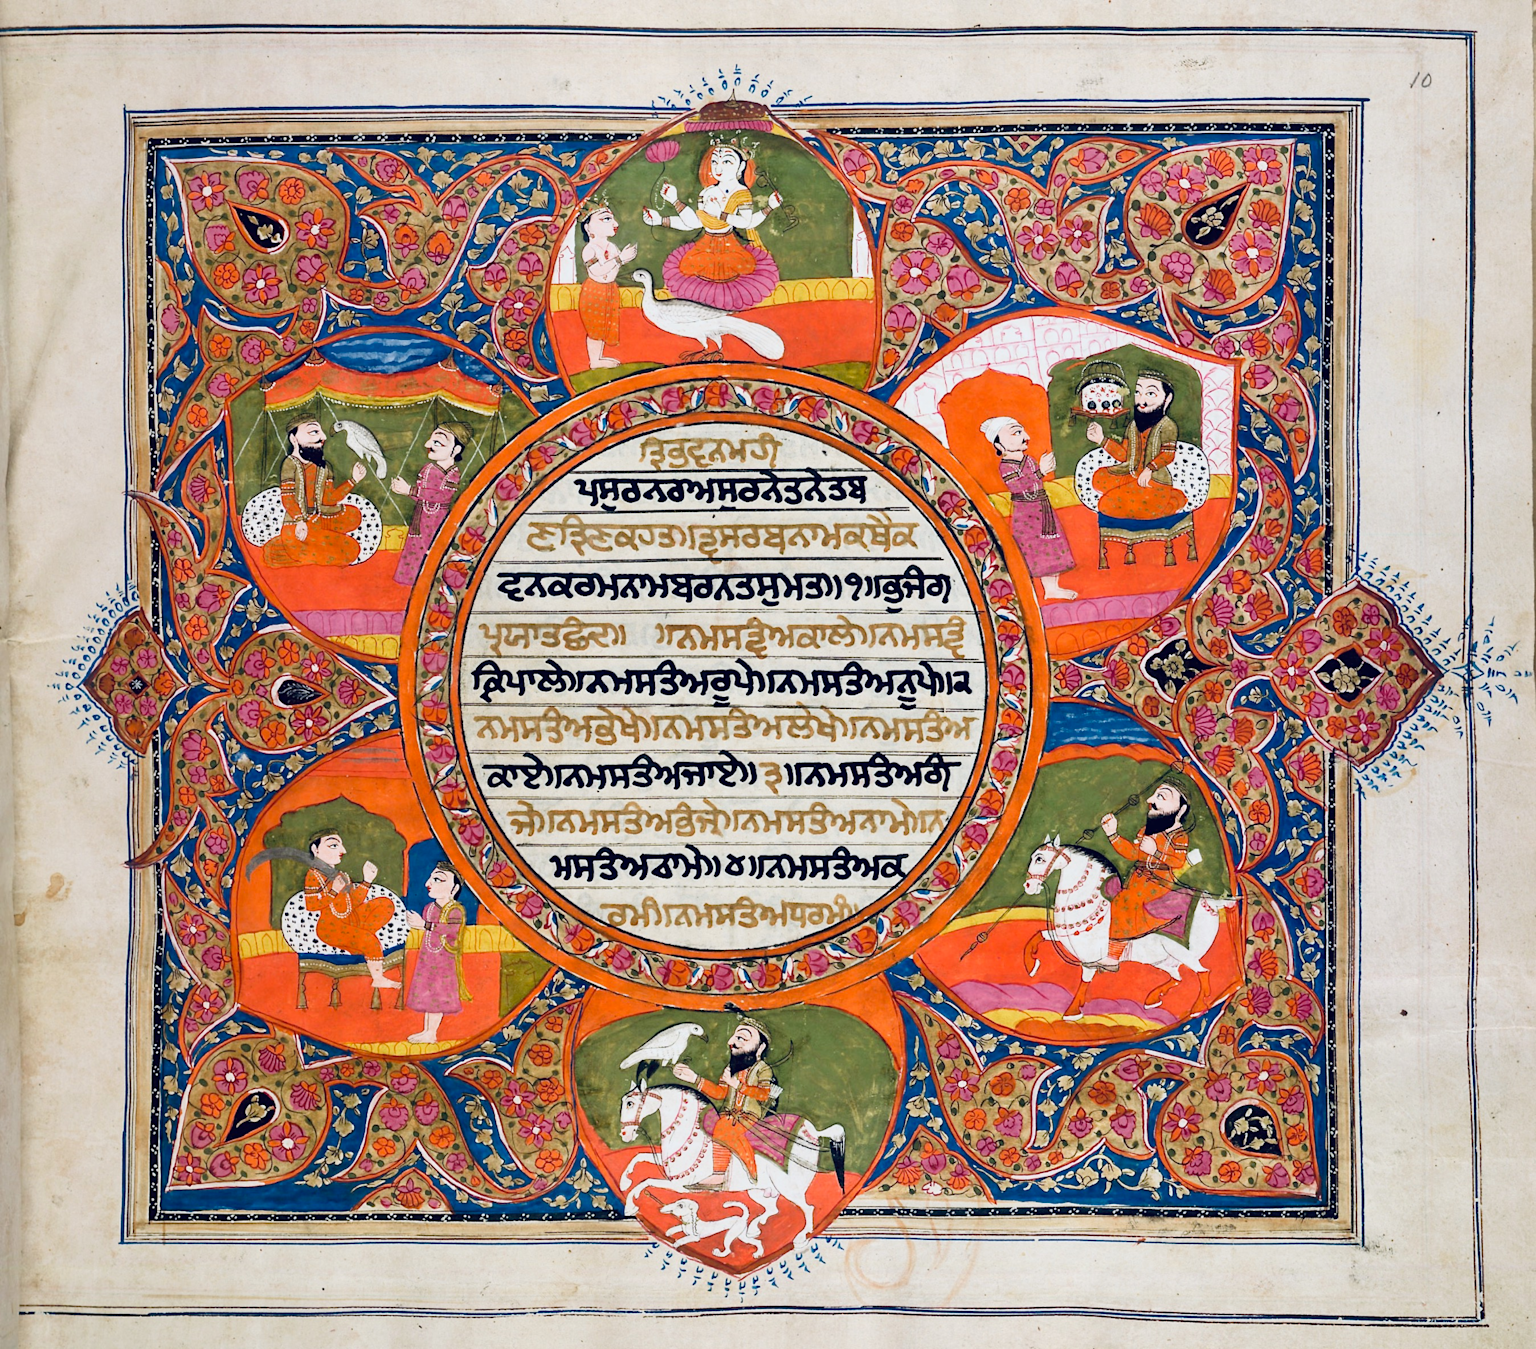 10
ਤ੍ਰਿਭੁਵਣਮਹੀ
ਪਸੁਰਨਰਅਸੁਰਨੇਤਨੇਤਬ
ਣਤ੍ਰਿਣਕਹਤ॥ਤ੍ਵਸਰਬਨਾਮਕਥੈਕ
ਵਨਕਰਮਨਾਮਬਰਨਤਸੁਮਤ॥੧॥ਭੁਜੰਗ
ਪ੍ਰਯਾਤਛੰਦ॥ ॥ਨਮਸਤ੍ਵੰਅਕਾਲੇ॥ਨਮਸਤ੍ਵੰ
ਕ੍ਰਿਪਾਲੇ॥ਨਮਸਤੰਅਰੂਪੇ॥ਨਮਸਤੰਅਨੂਪੇ॥੨
ਨਮਸਤੰਅਭੇਖੇ॥ਨਮਸਤੰਅਲੇਖੇ॥ਨਮਸਤੰਅ
ਕਾਏ॥ਨਮਸਤੰਅਜਾਏ॥੩॥ਨਮਸਤੰਅਗੰ
ਜੇ॥ਨਮਸਤੰਅਭੰਜੇ॥ਨਮਸਤੰਅਨਾਮੇ॥ਨ
ਮਸਤੰਅਠਾਮੇ॥੪॥ਨਮਸਤੰਅਕ
ਰਮੰ॥ਨਮਸਤੰਅਧਰਮੰ॥